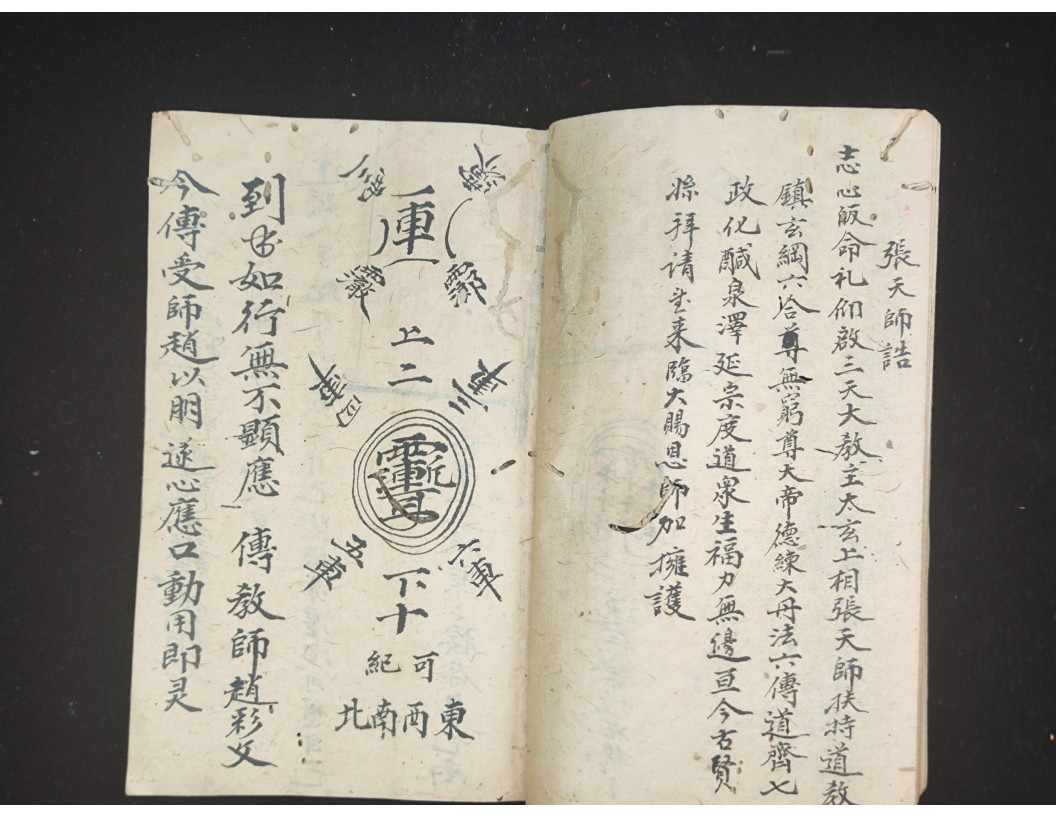 張天師誥
志心皈命礼仰啟三天大教主太玄上相張天師扶持道教
鎮玄綱六合尊無窮尊大帝德練大丹法六傳道齊七
政化醎泉澤延宗度道衆生福力無邊亘今古賢
拜请來臨大賜恩師加擁護
一車一
上二
三車
四車
五車
六車
下十
可紀
東西南北
到如行無不顯應 傳教師趙彩文
今傳受師趙以明遂心應口動用即灵